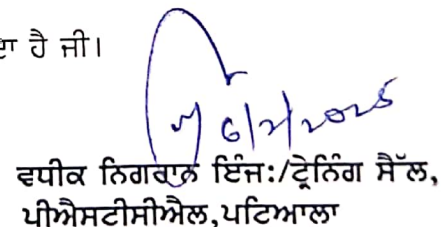 ਦਾ ਹੈ ਜੀ।
6/2/2025
ਵਧੀਕ ਨਿਗਰਾਨ ਇੰਜ:/ਟ੍ਰੇਨਿੰਗ ਸੈੱਲ,
ਪੀਐਸਟੀਸੀਐਲ,ਪਟਿਆਲਾ